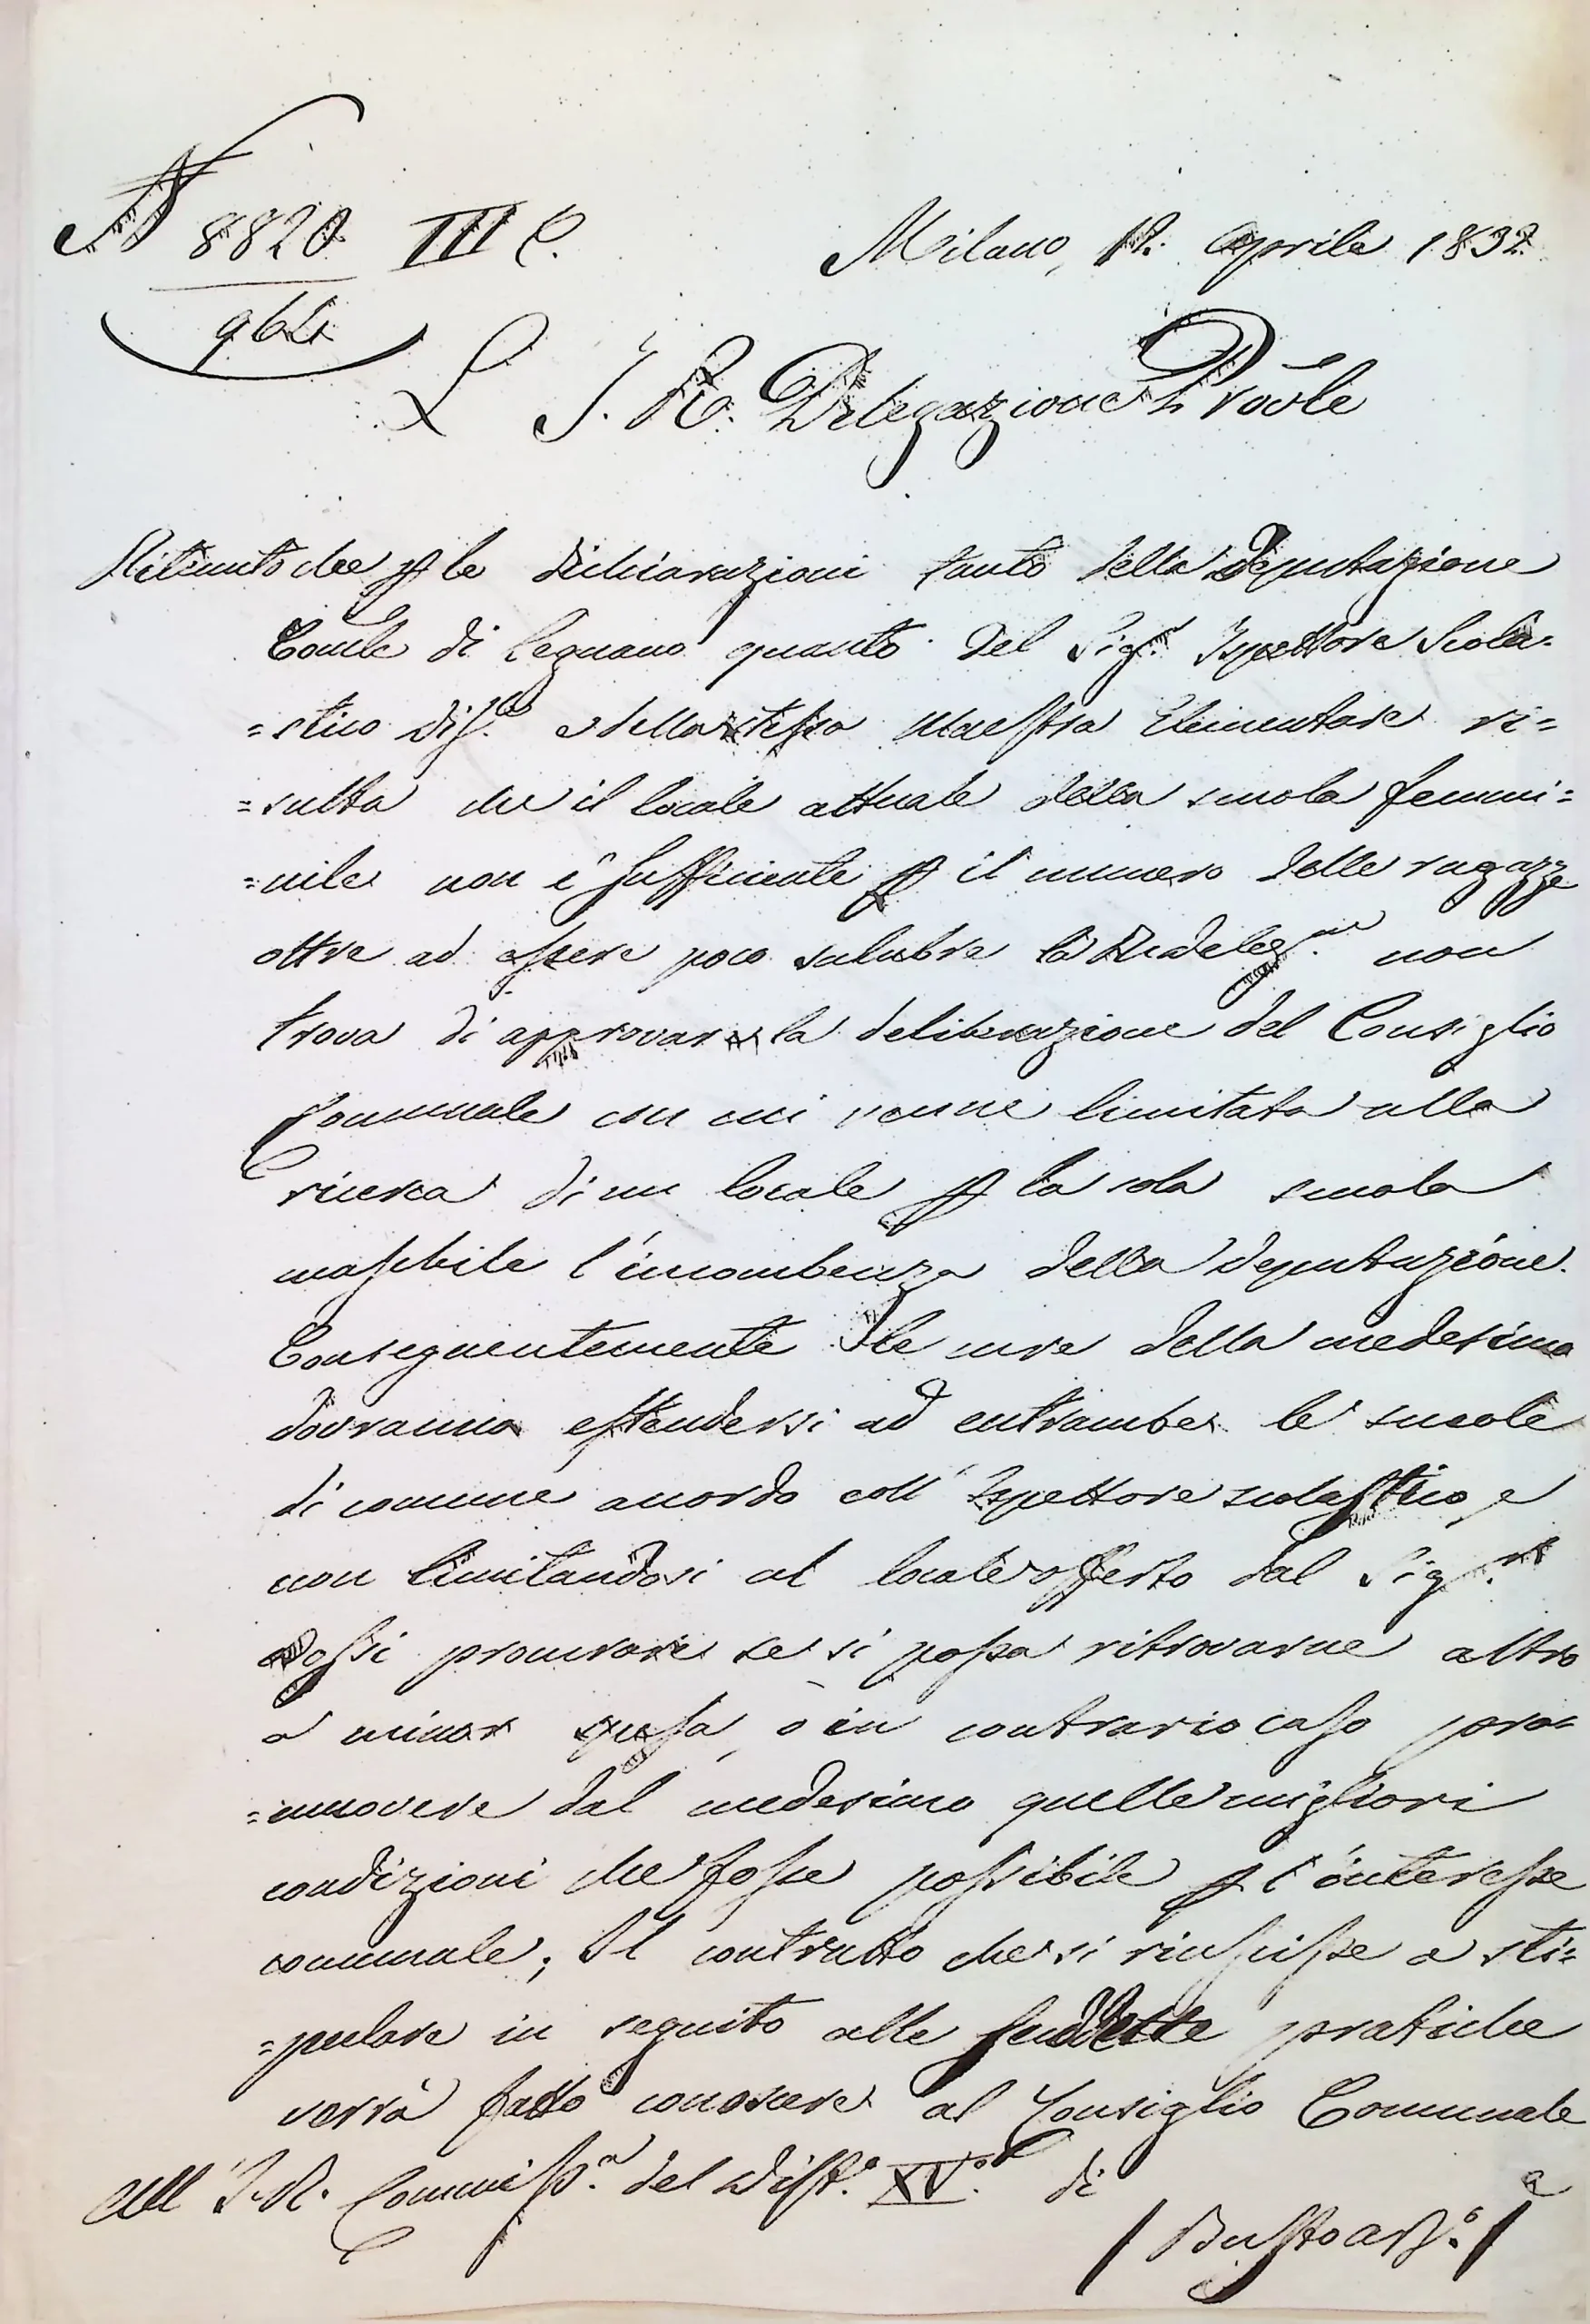 N 8820 III C.
964
Milano, 12. Aprile 1832.
L' I. R. Delegazione Provle
Ritenuto che p le dichiarazioni tanto della Deputazione
Comle di Legnano quanto del Sigr Ispettore Scola=
=stico dis.le e della stessa Maestra Elementare ri=
=sulta che il locale attuale della scuola femmi=
=nile non è sufficiente p il numero delle ragazze
oltre ad essere poco salubre la Delegne non
trova di approvare la deliberazione del Consiglio
Comunale con cui venne limitata alla
ricerca di un locale p la sola scuola
maschile l'incombenza della deputazione.
Conseguentemente le cure della medesima
dovranno estendersi ad entrambe le scuole
di comune accordo coll' Ispettore scolastico, e
non limitandosi al locale offerto dal Sigr
Possi procurare se si possa ritrovarne altro
a minor spesa, o in contrario caso pro=
=muovere dal medesimo quelle migliori
condizioni che fosse possibile p l'interesse
comunale; Il contratto che si riuscisse a sti=
=pulare in seguito alle suddette pratiche
verrà fatto conoscere al Consiglio Comunale
All' I. R. Commiss.o del Dist.o XV.o di
Busto Ars.o